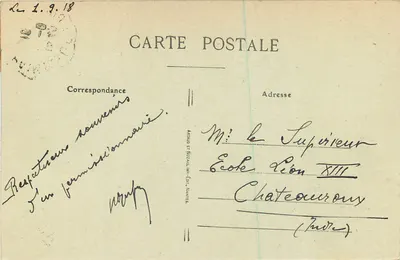 Le 1.9.18
CARTE POSTALE
Correspondance
Adresse
Respectueux souvenirs
d'un permissionnaire.
Mr le Supérieur
Ecole Léon XIII
Châteauroux
(Indre)